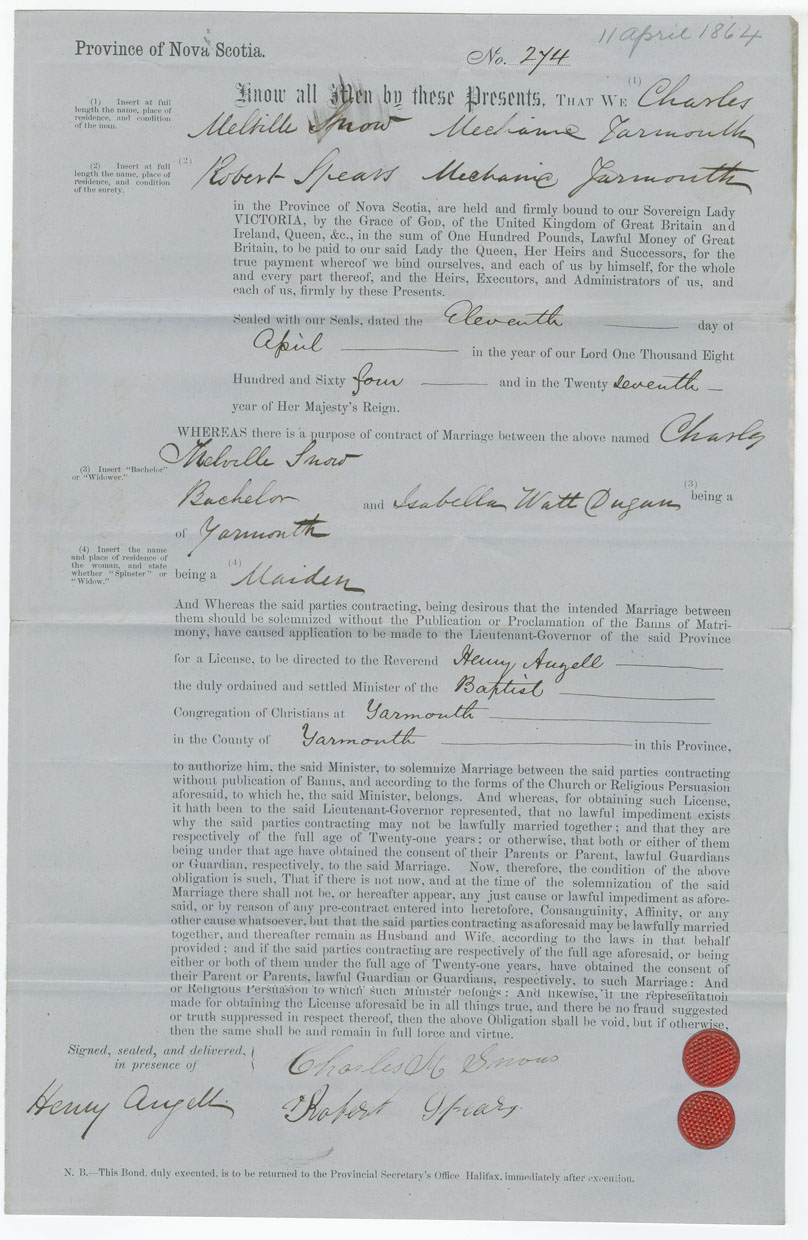 11 April 1864
Province of Nova Scotia.
No. 274
(1) Insert at full
length the name, place of
residence, and condition
of the man.
Know all Men by these Presents, THAT WE (1) Charles
Melville Snow Mechanic Yarmouth
(2) Insert at full
length the name, place of
residence, and condition
of the surety.
(2) Robert Spears Mechanic Yarmouth
in the Province of Nova Scotia, are held and firmly bound to our Sovereign Lady
VICTORIA, by the Grace of GOD, of the United Kingdom of Great Britain and
Ireland, Queen, &c., in the sum of One Hundred Pounds, Lawful Money of Great
Britain, to be paid to our said Lady the Queen, Her Heirs and Successors, for the
true payment whereof we bind ourselves, and each of us by himself, for the whole
and every part thereof, and the Heirs, Executors, and Administrators of us, and
each of us, firmly by these Presents.
Sealed with our Seals, dated the Eleventh day of
April in the year of our Lord One Thousand Eight
Hundred and Sixty four and in the Twenty seventh
year of Her Majesty's Reign.
WHEREAS there is a purpose of contract of Marriage between the above named Charles
Melville Snow
(3) Insert "Bachelor"
or "Widower."
(3) being a
Bachelor and Isabella Watt Dugan
of Yarmouth
(4) Insert the name
and place of residence of
the woman, and state
whether "Spinster" or
"Widow."
being a (4) Maiden
And Whereas the said parties contracting, being desirous that the intended Marriage between
them should be solemnized without the Publication or Proclamation of the Banns of Matri-
mony, have caused application to be made to the Lieutenant-Governor of the said Province
for a License, to be directed to the Reverend Henry Angell
the duly ordained and settled Minister of the Baptist
Congregation of Christians at Yarmouth
in the County of Yarmouth in this Province,
to authorize him, the said Minister, to solemnize Marriage between the said parties contracting
without publication of Banns, and according to the forms of the Church or Religious Persuasion
aforesaid, to which he, the said Minister, belongs. And whereas, for obtaining such License,
it hath been to the said Lieutenant-Governor represented, that no lawful impediment exists
why the said parties contracting may not be lawfully married together; and that they are
respectively of the full age of Twenty-one years; or otherwise, that both or either of them
being under that age have obtained the consent of their Parents or Parent, lawful Guardians
or Guardian, respectively, to the said Marriage. Now, therefore, the condition of the above
obligation is such, That if there is not now, and at the time of the solemnization of the said
Marriage there shall not be, or hereafter appear, any just cause or lawful impediment as afore-
said, or by reason of any pre-contract entered into heretofore, Consanguinity, Affinity, or any
other cause whatsoever, but that the said parties contracting as aforesaid may be lawfully married
together, and thereafter remain as Husband and Wife, according to the laws in that behalf
provided; and if the said parties contracting are respectively of the full age aforesaid, or being
either or both of them under the full age of Twenty-one years, have obtained the consent of
their Parent or Parents, lawful Guardian or Guardians, respectively, to such Marriage: And
or Religious Persuasion to which such Minister belongs: And likewise, if the representation
made for obtaining the License aforesaid be in all things true, and there be no fraud suggested
or truth suppressed in respect thereof, then the above Obligation shall be void, but if otherwise,
then the same shall be and remain in full force and virtue.
Signed, sealed, and delivered,
in presence of
Charles M Snow
Henry Angell Robert Spears
N. B.—This Bond, duly executed, is to be returned to the Provincial Secretary's Office Halifax, immediately after execution.